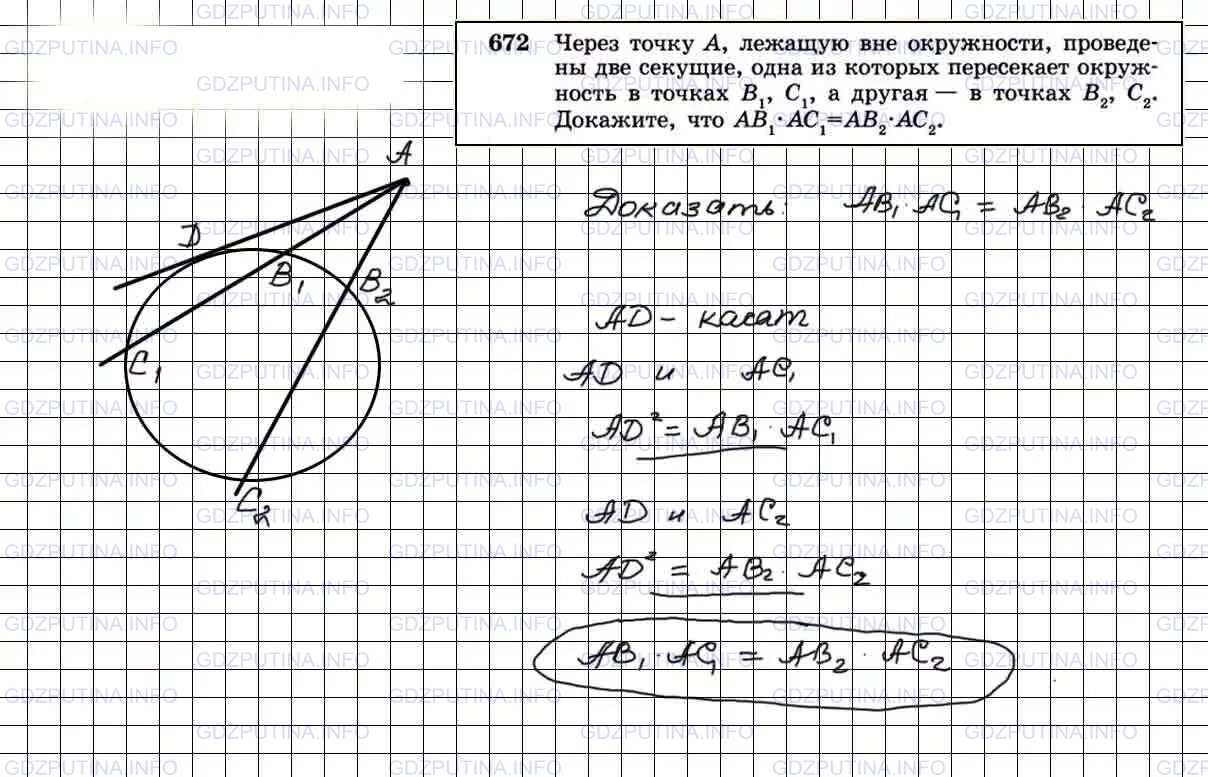 672 Через точку A, лежащую вне окружности, проведе-
ны две секущие, одна из которых пересекает окруж-
ность в точках B₁, C₁, а другая — в точках B₂, C₂.
Докажите, что AB₁·AC₁=AB₂·AC₂.
A
D
B₁
B₂
C₁
C₂
Доказать: AB₁ · AC₁ = AB₂ · AC₂
AD – касат
AD и AC₁
AD² = AB₁ · AC₁
AD и AC₂
AD² = AB₂ · AC₂
AB₁ · AC₁ = AB₂ · AC₂
GDZPUTINA.INFO